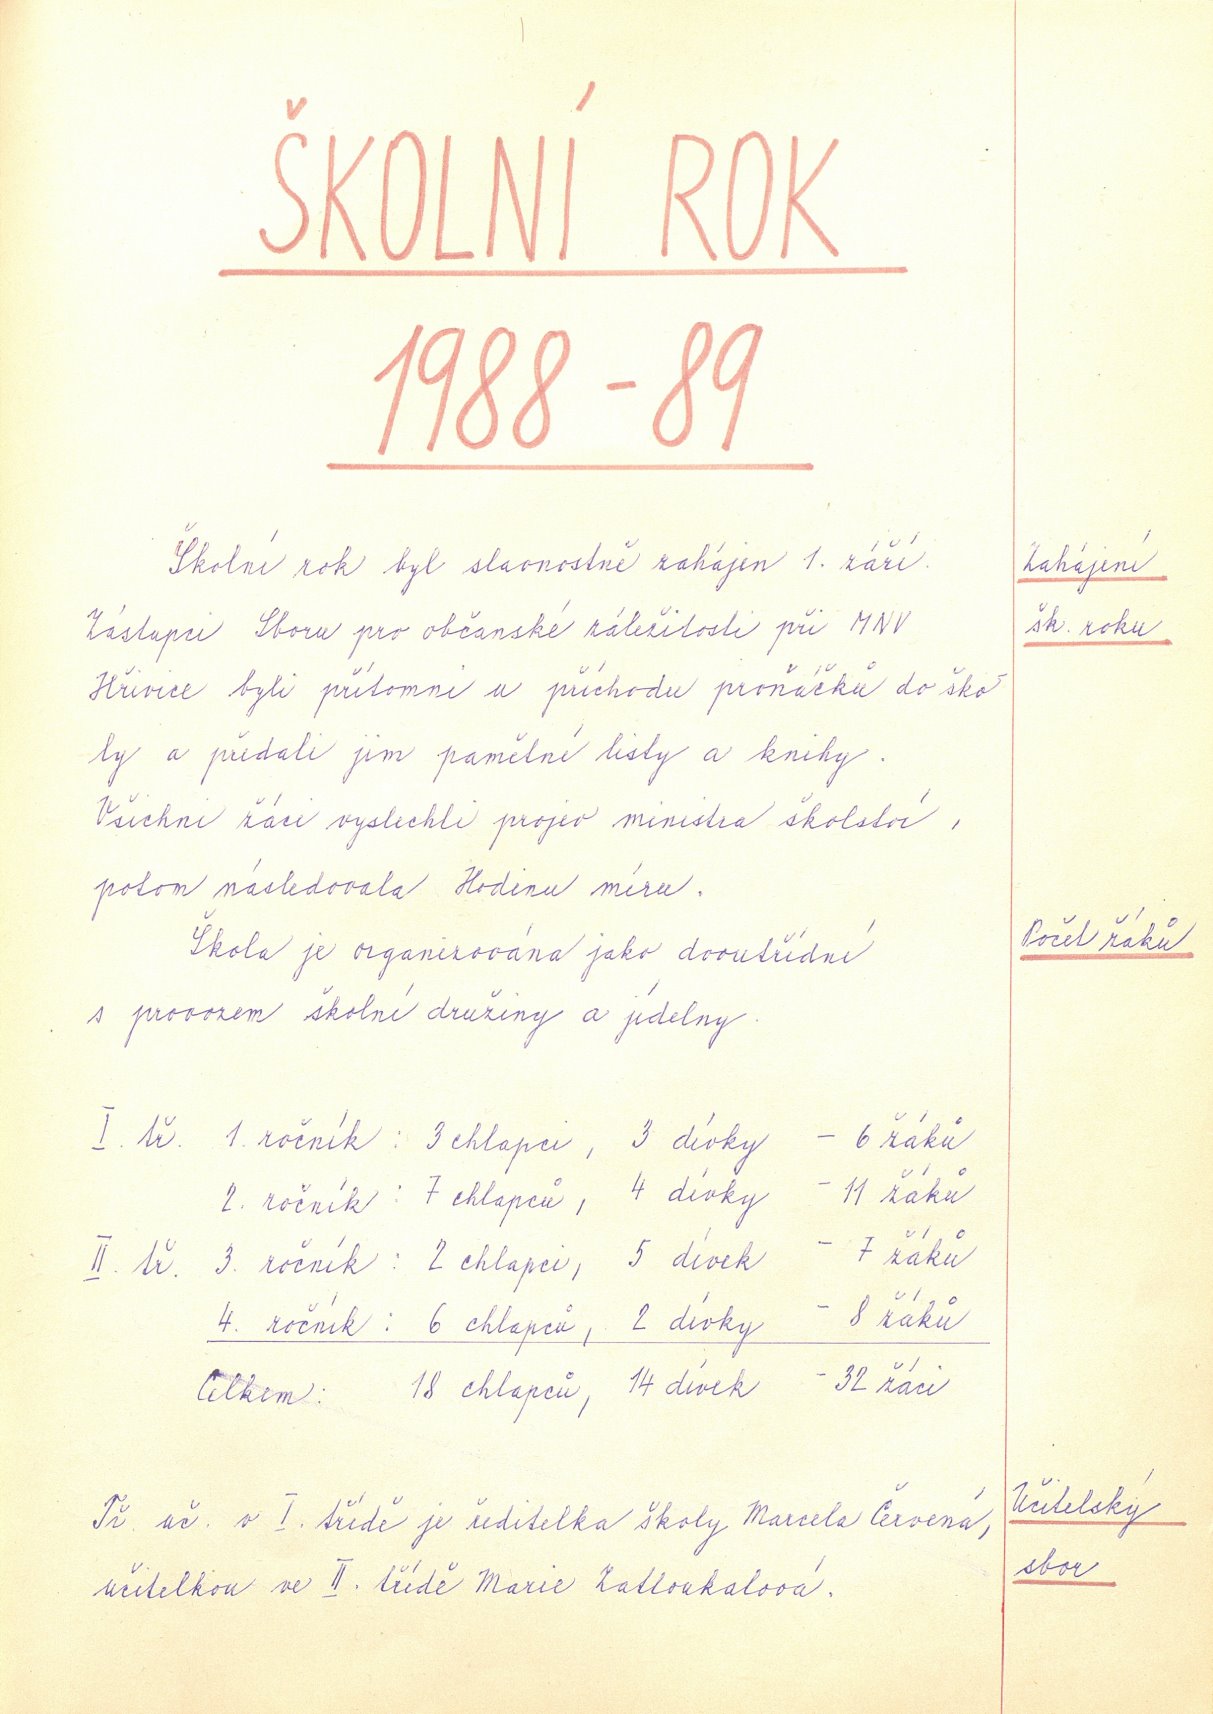 ŠKOLNÍ ROK
1988 - 89
Školní rok byl slavnostně zahájen 1. září.
Zahájení
Zástupci Sboru pro občanské záležitosti při MNV
šk. roku
Hřivice byli přítomni u příchodu prvňáčků do ško-
ly a předali jim pamětní listy a knihy.
Všichni žáci vyslechli projev ministra školství,
potom následovala Hodina míru.
Škola je organizována jako dvoutřídní
Počet žáků
s provozem školní družiny a jídelny.
I. tř. 1. ročník : 3 chlapci, 3 dívky - 6 žáků
2. ročník : 7 chlapců, 4 dívky - 11 žáků
II. tř. 3. ročník : 2 chlapci, 5 dívek - 7 žáků
4. ročník : 6 chlapců, 2 dívky - 8 žáků
Celkem : 18 chlapců, 14 dívek - 32 žáci
Tř. uč. v I. třídě je ředitelka školy Marcela Červená,
Učitelský
učitelkou ve II. třídě Marie Zatloukalová.
sbor